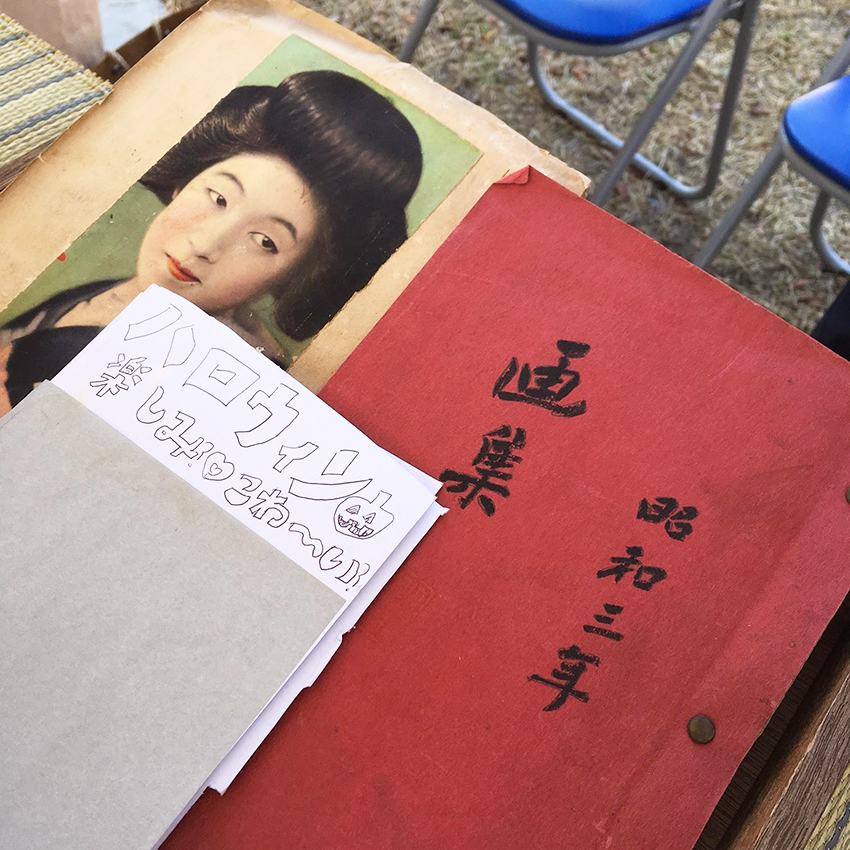 ハロウィン
楽しみ♡こわ〜い!!
画集
昭和三年